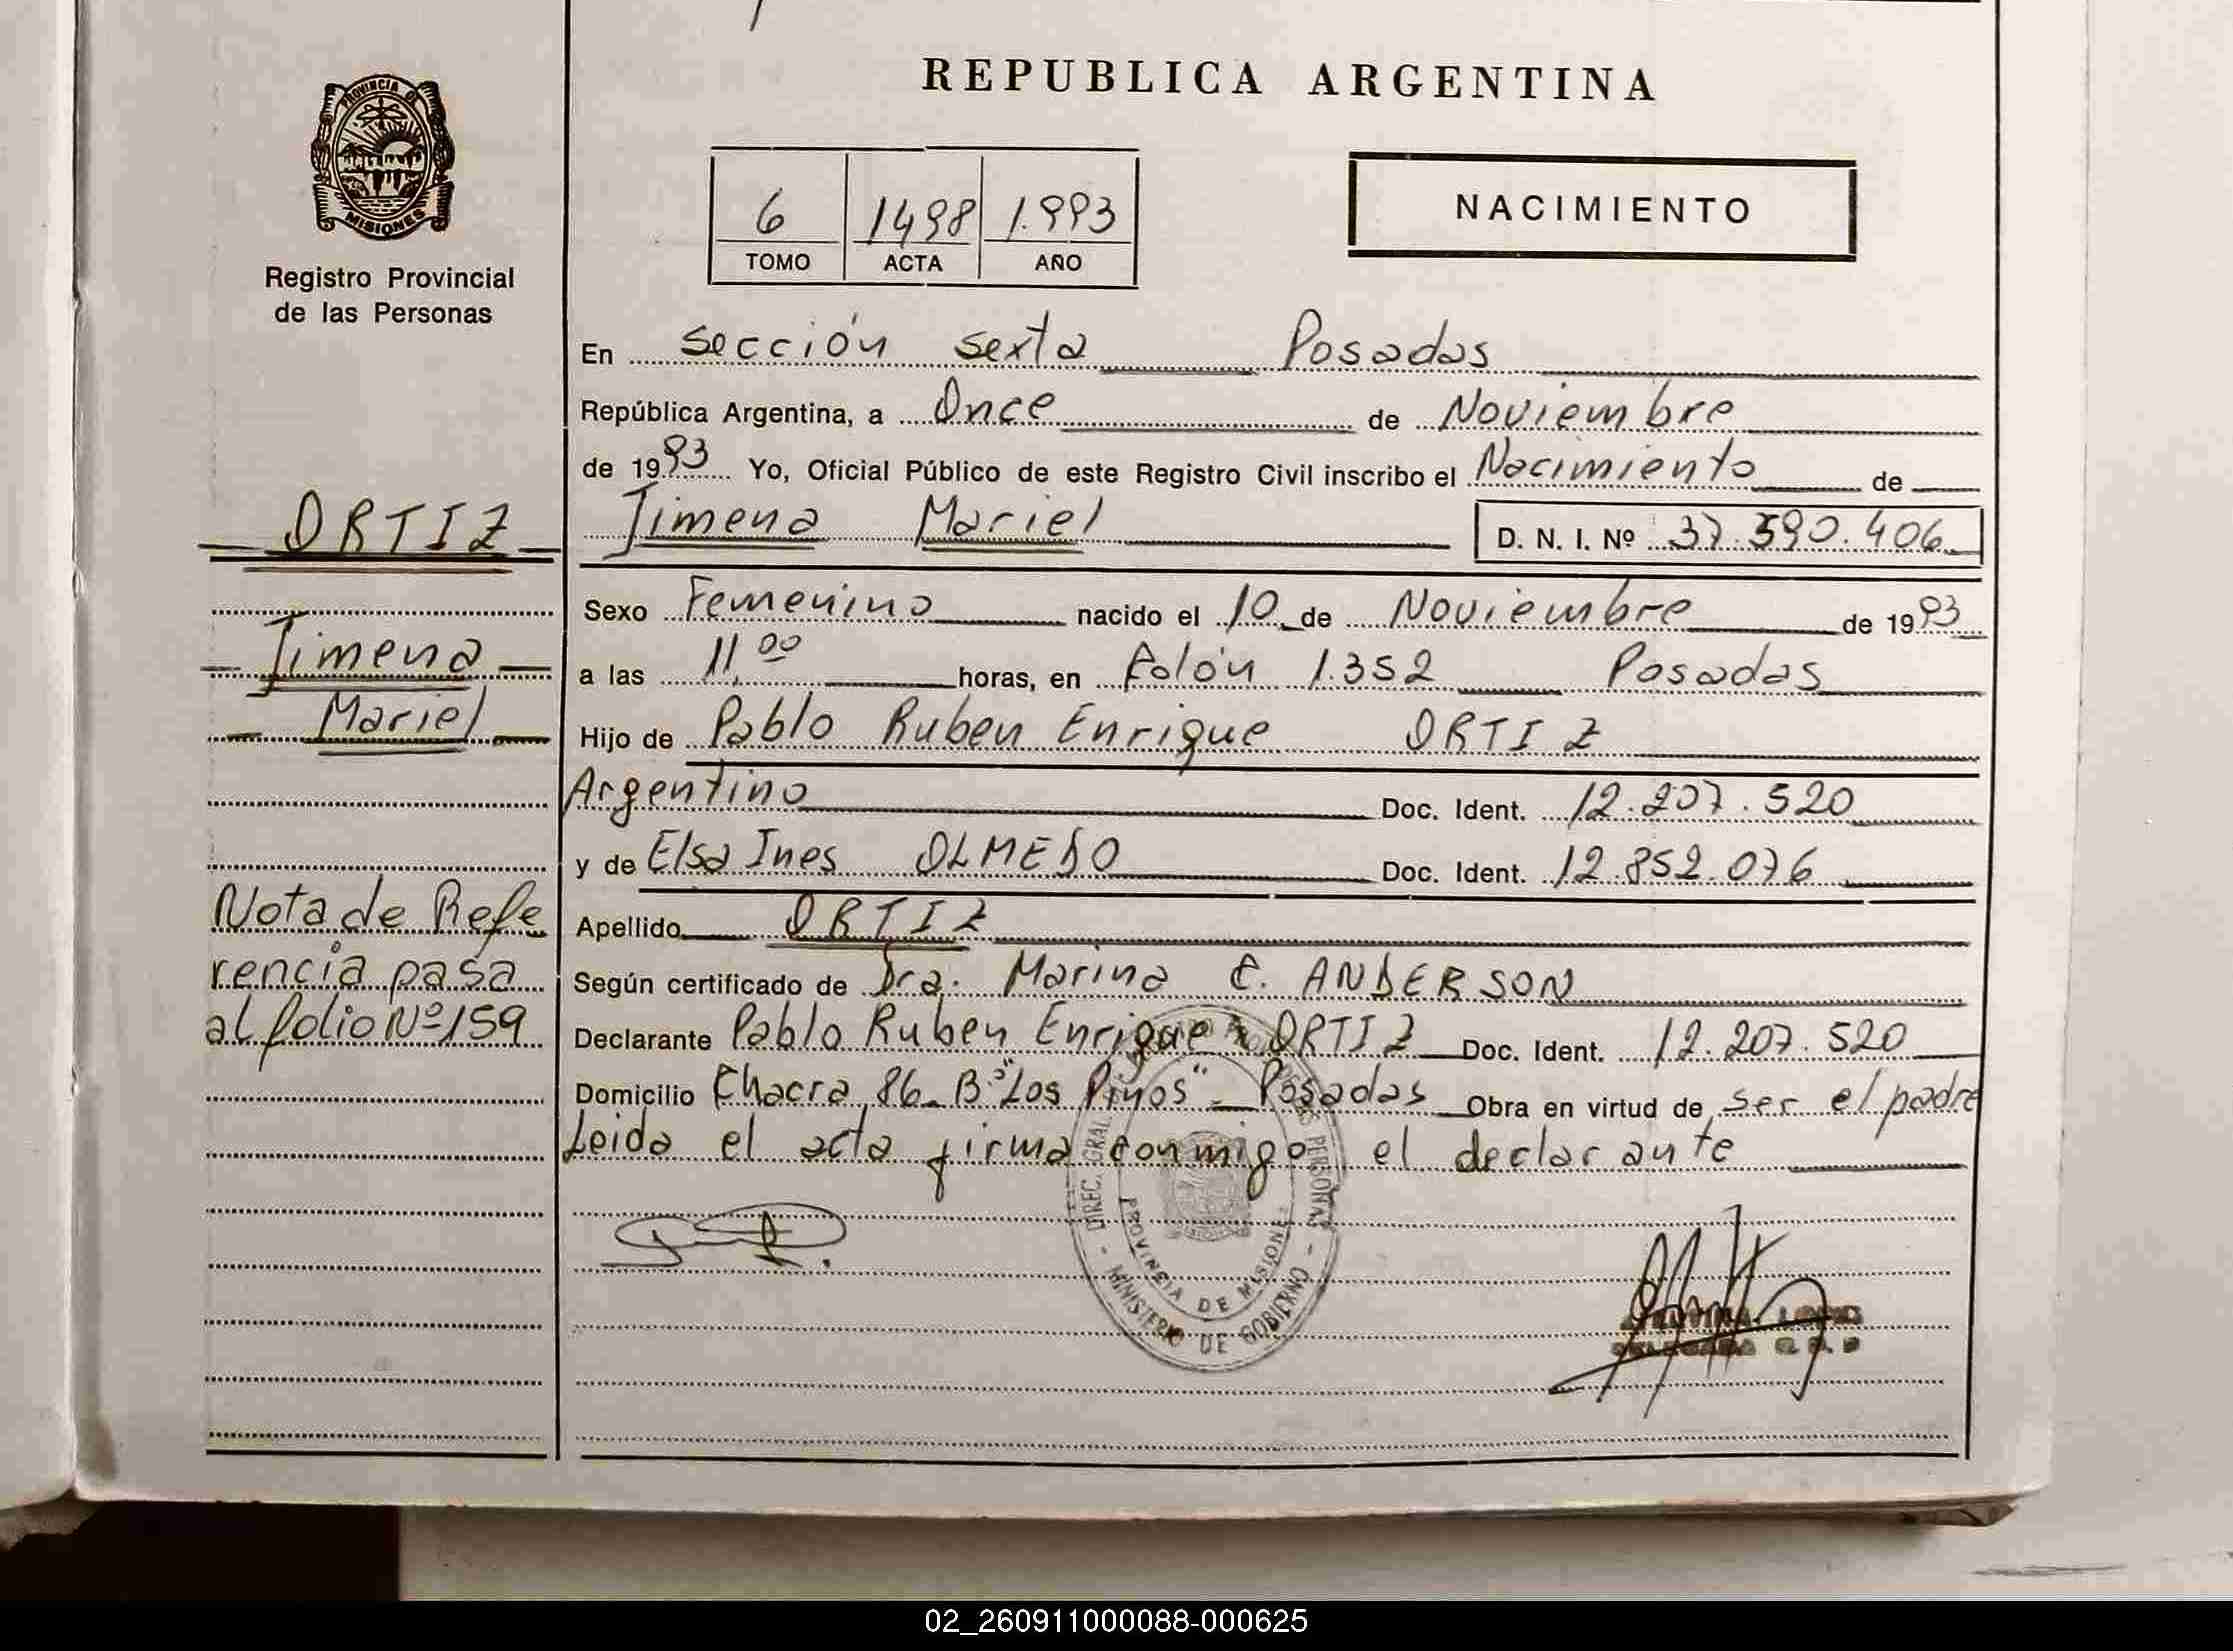 REPUBLICA ARGENTINA
PROVINCIA DE
MISIONES
Registro Provincial
de las Personas
6 1498 1.993
TOMO ACTA AÑO
NACIMIENTO
En sección sexta Posadas
República Argentina, a Once de Noviembre
de 1993 Yo, Oficial Público de este Registro Civil inscribo el Nacimiento de
ORTIZ
Jimena Mariel D. N. I. Nº 37.590.406
Sexo Femenino nacido el 10 de Noviembre de 1993
Jimena
a las 11,00 horas, en Colón 1.352 Posadas
Mariel
Hijo de Pablo Ruben Enrique ORTIZ
Argentino Doc. Ident. 12.207.520
y de Elsa Ines OLMEDO Doc. Ident. 12.852.076
Nota de Refe
rencia pasa
al folio Nº 159
Apellido ORTIZ
Según certificado de Dra. Marina C. ANDERSON
Declarante Pablo Ruben Enrique ORTIZ Doc. Ident. 12.207.520
Domicilio Chacra 86 - Bº "Los Pinos" - Posadas Obra en virtud de ser el padre
Leida el acta firma conmigo el declarante
DIREC. GRAL. PERSONAS
PROVINCIA DE MISIONES
- MINISTERIO DE GOBIERNO -
02_260911000088-000625